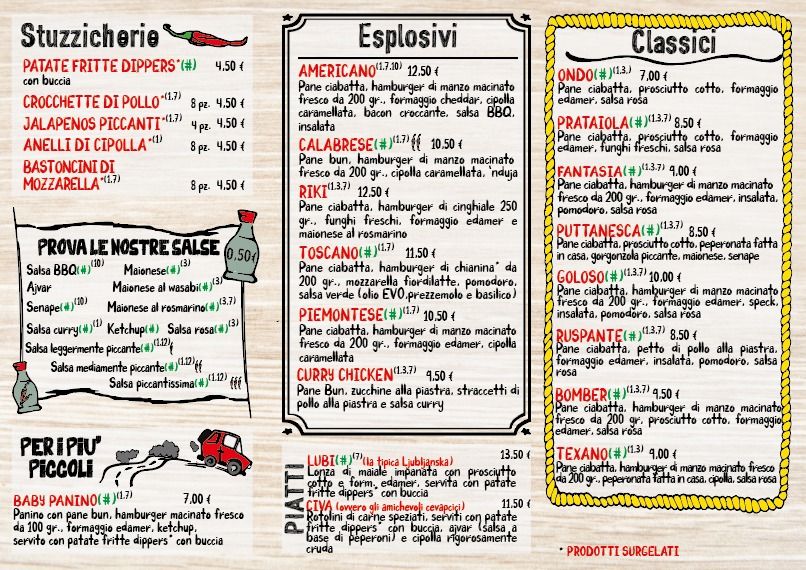 Stuzzicherie
PATATE FRITTE DIPPERS*(#) 4,50 €
con buccia
CROCCHETTE DI POLLO*(1.7) 8 pz. 4,50 €
JALAPENOS PICCANTI*(1.7) 4 pz. 4,50 €
ANELLI DI CIPOLLA*(1) 8 pz. 4,50 €
BASTONCINI DI
MOZZARELLA*(1.7) 8 pz. 4,50 €
PROVA LE NOSTRE SALSE
0,50€
Salsa BBQ(#)(10) Maionese(#)(3)
Ajvar Maionese al wasabi(#)(3)
Senape(#)(10) Maionese al rosmarino(#)(3.7)
Salsa curry(#)(1) Ketchup(#) Salsa rosa(#)(3)
Salsa leggermente piccante(#)(1.12)
Salsa mediamente piccante(#)(1.12)
Salsa piccantissima(#)(1.12)
PER I PIU'
PICCOLI
BABY PANINO(#)(1.7) 7,00 €
Panino con pane bun, hamburger manzo macinato fresco
da 100 gr., formaggio edamer, ketchup,
servito con patate fritte dippers* con buccia
Esplosivi
AMERICANO(1.7.10) 12,50 €
Pane ciabatta, hamburger di manzo macinato
fresco da 200 gr., formaggio cheddar, cipolla
caramellata, bacon croccante, salsa BBQ,
insalata
CALABRESE(#)(1.7) 10,50 €
Pane bun, hamburger di manzo macinato
fresco da 200 gr., cipolla caramellata, 'nduja
RIKI(1.3.7) 12,50 €
Pane ciabatta, hamburger di cinghiale 250
gr., funghi freschi, formaggio edamer e
maionese al rosmarino
TOSCANO(#)(1.7) 11,50 €
Pane ciabatta, hamburger di chianina* da
200 gr., mozzarella fiordilatte, pomodoro,
salsa verde (olio EVO,prezzemolo e basilico)
PIEMONTESE(#)(1.7) 10,50 €
Pane ciabatta, hamburger di manzo macinato
fresco da 200 gr., formaggio edamer, cipolla
caramellata
CURRY CHICKEN(1.3.7) 9,50 €
Pane Bun, zucchine alla piastra, straccetti di
pollo alla piastra e salsa curry
PIATTI
LUBI(#)(7)(la tipica Ljubljanska) 13,50 €
Lonza di maiale impanata con prosciutto
cotto e form. edamer, servita con patate
fritte dippers* con buccia
CIVA (ovvero gli amichevoli cevapcici) 11,50 €
Rotolini di carne speziati, serviti con patate
fritte dippers* con buccia, ajvar (salsa a
base di peperoni) e cipolla rigorosamente
cruda
Classici
ONDO(#)(1.3.) 7,00 €
Pane ciabatta, prosciutto cotto, formaggio
edamer, salsa rosa
PRATAIOLA(#)(1.3.7) 8,50 €
Pane ciabatta, prosciutto cotto, formaggio
edamer, funghi freschi, salsa rosa
FANTASIA(#)(1.3.7) 9,00 €
Pane ciabatta, hamburger di manzo macinato
fresco da 200 gr., formaggio edamer, insalata,
pomodoro, salsa rosa
PUTTANESCA(#)(1.3.7) 8,50 €
Pane ciabatta, prosciutto cotto, peperonata fatta
in casa, gorgonzola piccante, maionese, senape
GOLOSO(#)(1.3.7) 10,00 €
Pane ciabatta, hamburger di manzo macinato
fresco da 200 gr., formaggio edamer, speck,
insalata, pomodoro, salsa rosa
RUSPANTE(#)(1.3.7) 8,50 €
Pane ciabatta, petto di pollo alla piastra,
formaggio edamer, insalata, pomodoro, salsa
rosa
BOMBER(#)(1.3.7) 9,50 €
Pane ciabatta, hamburger di manzo macinato
fresco da 200 gr., prosciutto cotto, formaggio
edamer, salsa rosa
TEXANO(#)(1.3) 9,00 €
Pane ciabatta, hamburger di manzo macinato fresco
da 200 gr., peperonata fatta in casa, cipolla, salsa rosa
* PRODOTTI SURGELATI